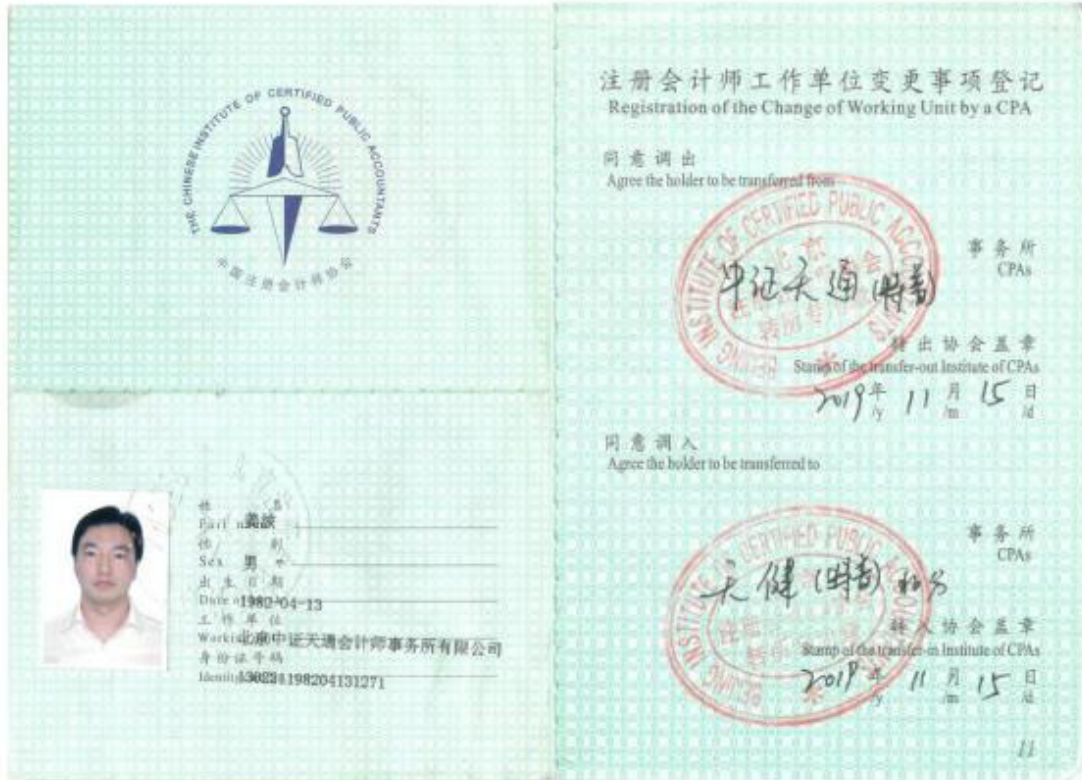 THE CHINESE INSTITUTE OF CERTIFIED PUBLIC ACCOUNTANTS
中国注册会计师协会
姓名
Full name
姜波
性别
Sex 男
出生日期
Date of birth 1982-04-13
工作单位
Working 北京中证天通会计师事务所有限公司
身份证号码
Identity 130221198204131271
注册会计师工作单位变更事项登记
Registration of the Change of Working Unit by a CPA
同意调出
Agree the holder to be transferred from
BEIJING INSTITUTE OF CERTIFIED PUBLIC ACCOUNTANTS
中证天通(特普)
事务所
CPAs
转出协会盖章
Stamp of the transfer-out Institute of CPAs
2019年 11月 15日
/y /m /d
同意调入
Agree the holder to be transferred to
BEIJING INSTITUTE OF CERTIFIED PUBLIC ACCOUNTANTS
天健(特普)
事务所
CPAs
转入协会盖章
Stamp of the transfer-in Institute of CPAs
2019年 11月 15日
/y /m /d
11